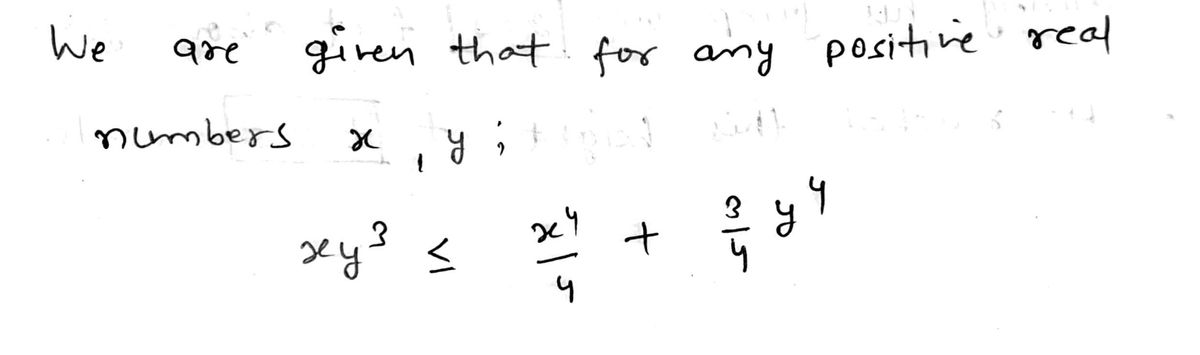 We are given that for any positive real
numbers x, y;
xy³ ≤ x⁴/4 + 3/4 y⁴